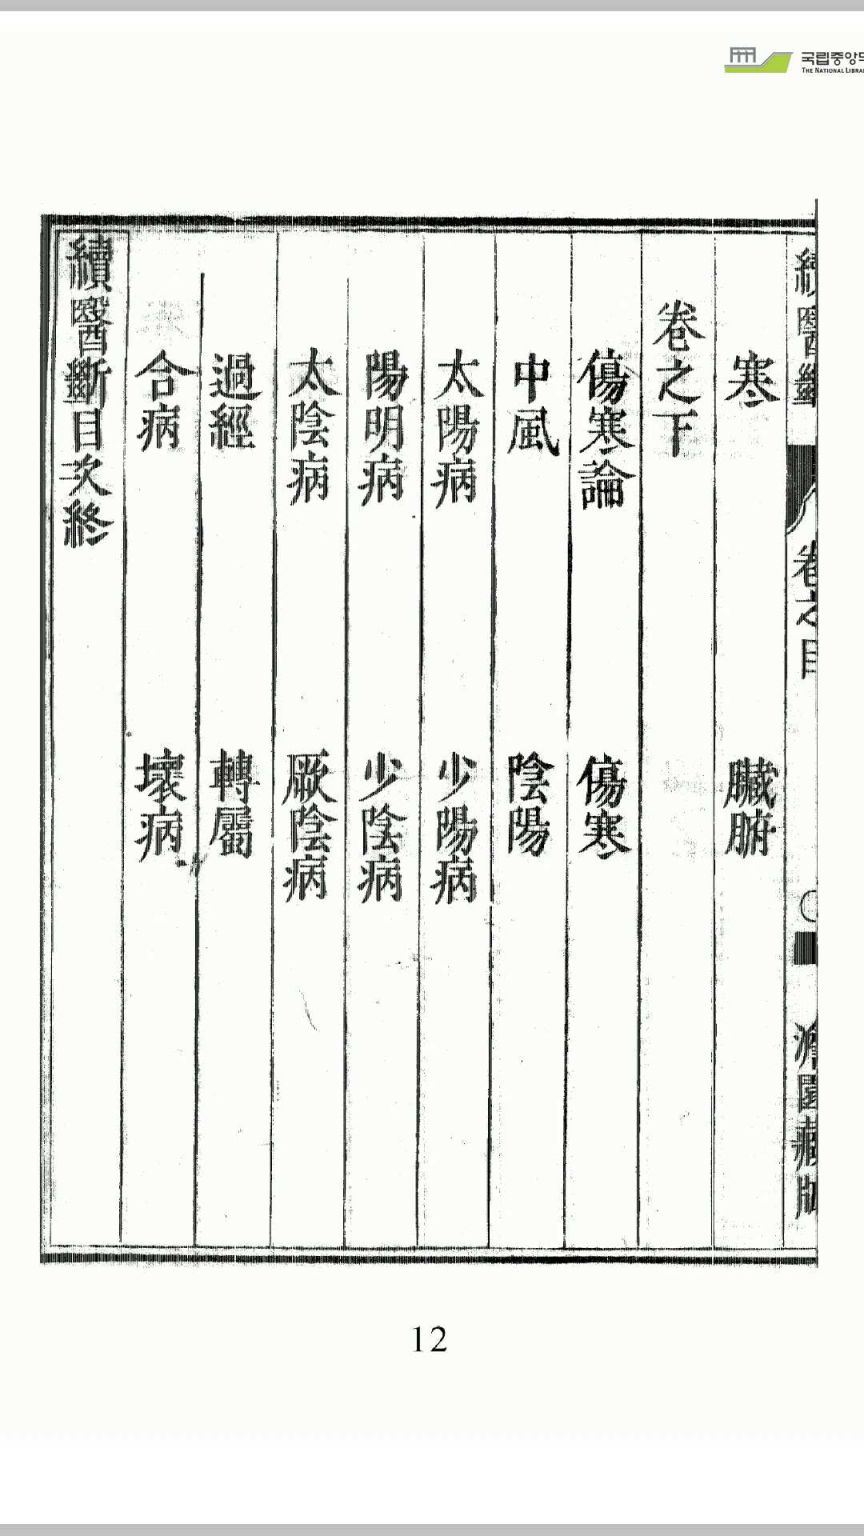 국립중앙도
THE NATIONAL LIBRA
續醫斷
卷之目
澹園藏版
寒
臟腑
卷之下
傷寒論
傷寒
中風
陰陽
太陽病
少陽病
陽明病
少陰病
太陰病
厥陰病
過經
轉屬
合病
壞病
續醫斷目次終
12